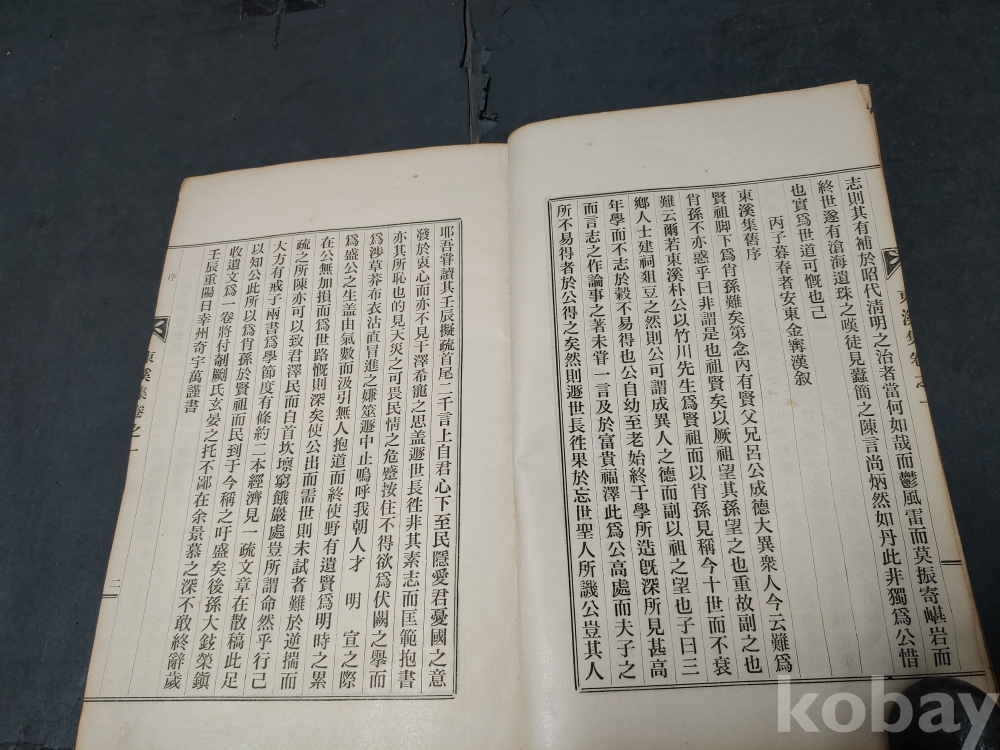 志則其有補於昭代淸明之治者當何如哉而鬱風雷而莫振寄嵁岩而
終世遂有滄海遺珠之嘆徒見蠹簡之陳言尚炳然如丹此非獨爲公惜
也實爲世道可慨也已
丙子暮春者安東金寗漢叙
東溪集舊序
賢祖脚下爲肖孫難矣第念內有賢父兄呂公成德大異衆人今云難爲
肖孫不亦惑乎曰非謂是也祖賢矣以厥祖望其孫望之也重故副之也
難云爾若東溪朴公以竹川先生爲賢祖而以肖孫見稱今十世而不衰
鄕人士建祠俎豆之然則公可謂成異人之德而副以祖之望也子曰三
年學而不志於穀不易得也公自幼至老始終于學所造旣深所見甚高
而言志之作論事之著未甞一言及於富貴福澤此爲公高處而夫子之
所不易得者於公得之矣然則遯世長徃果於忘世聖人所譏公豈其人
東溪集卷之一
耶吾甞讀其壬辰擬疏首尾二千言上自君心下至民隱愛君憂國之意
發於衷心而亦不見干澤希寵之思盖遯世長徃非其素志而匡範抱書
亦其所恥也的見天災之可畏民情之危蹙按住不得欲爲伏闕之擧而
爲涉草莽布衣沽直冒進之嫌筮遯中止嗚呼我朝人才 明 宣之際
爲盛公之生盖由氣數而汲引無人抱道而終使野有遺賢爲明時之累
在公無加損而爲世路慨則深矣使公出而需世則未試者難於逆揣而
疏之所陳亦可以致君澤民而白首坎壈窮餓巖處豈所謂命然乎行己
大方有戒子兩書爲學節度有條約二本經濟見一疏文章在散稿此足
以知公此所以爲肖孫於賢祖而民到于今稱之吁盛矣後孫大鉉榮鎭
收遺文爲一卷將付剞劂氏玄晏之托不鄙在余景慕之深不敢終辭歲
壬辰重陽日幸州奇宇萬謹書
序
東溪集卷之一
二
kobay